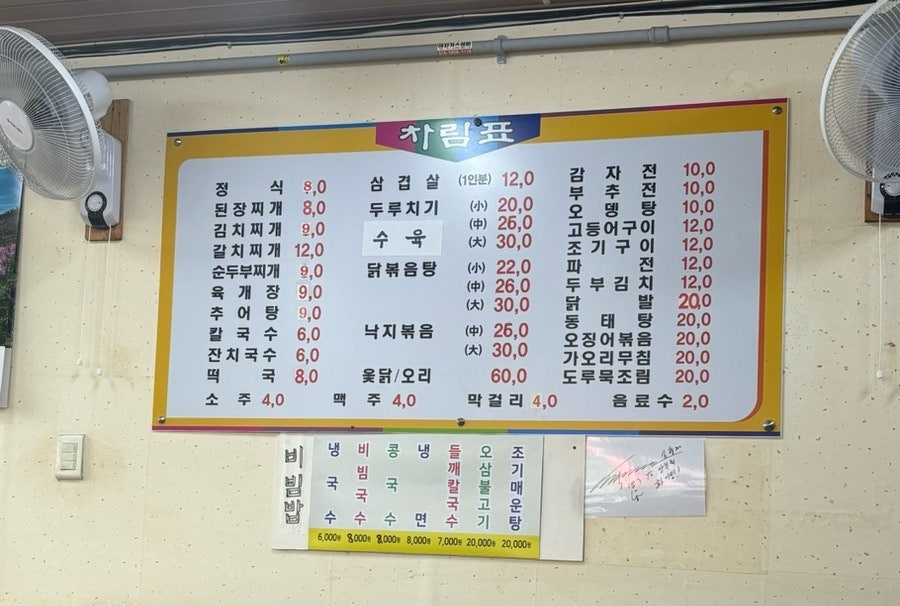 차림표
정식 8,0
된장찌개 8,0
김치찌개 9,0
갈치찌개 12,0
순두부찌개 9,0
육개장 9,0
추어탕 9,0
칼국수 6,0
잔치국수 6,0
떡국 8,0
삼겹살 (1인분) 12,0
두루치기 (小) 20,0
(中) 26,0
수육 (大) 30,0
닭볶음탕 (小) 22,0
(中) 26,0
(大) 30,0
낙지볶음 (中) 26,0
(大) 30,0
옻닭/오리 60,0
감자전 10,0
부추전 10,0
오뎅탕 10,0
고등어구이 12,0
조기구이 12,0
파전 12,0
두부김치 12,0
닭발 20,0
동태탕 20,0
오징어볶음 20,0
가오리무침 20,0
도루묵조림 20,0
소주 4,0 맥주 4,0 막걸리 4,0 음료수 2,0
비빔밥
냉국수 6,000원
비빔국수 8,000원
콩국수 8,000원
냉면 8,000원
들깨칼국수 7,000원
오삼불고기 20,000원
조기매운탕 20,000원